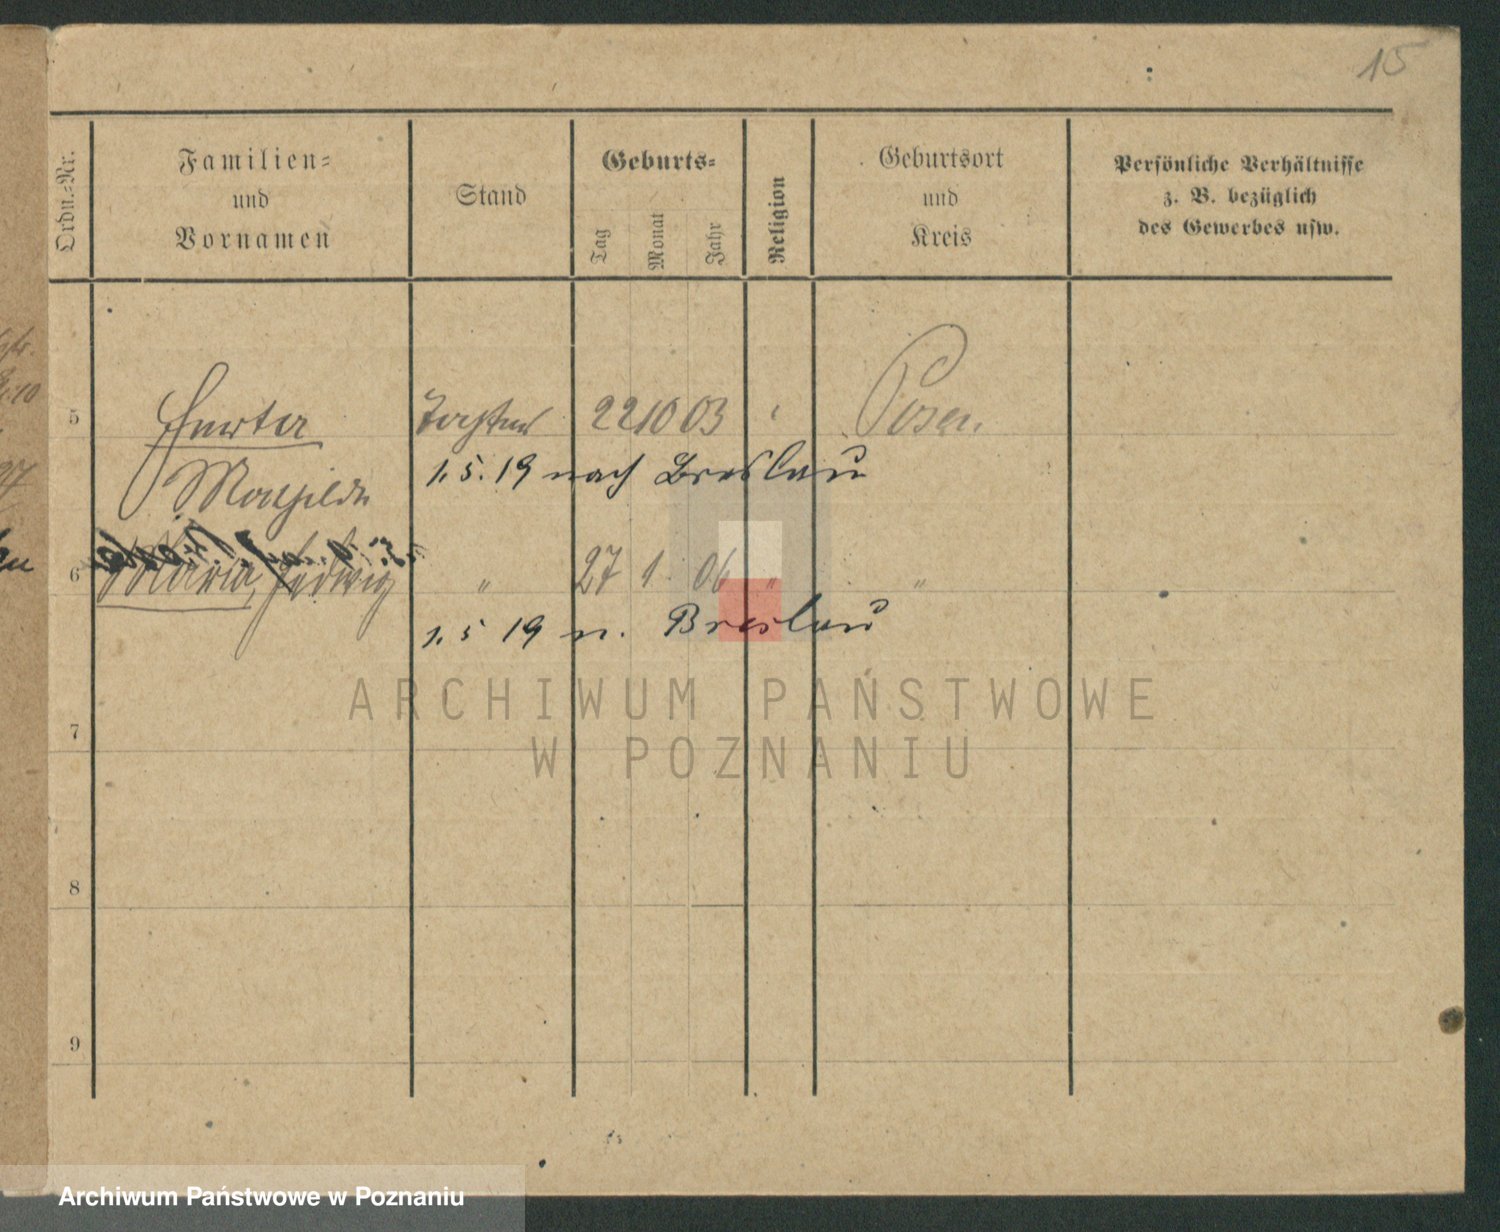 15
Ordn.-Nr.
Familien-
und
Vornamen
Stand
Geburts-
Tag
Monat
Jahr
Religion
Geburtsort
und
Kreis
Persönliche Verhältnisse
z. B. bezüglich
des Gewerbes usw.
5
Herta Tochter 22 10 03 Posen
1. 5. 19 nach Breslau
Mathilde
6 Maria, Hedwig " 27 1 06 " "
1. 5 19 n. Breslau
ARCHIWUM PAŃSTWOWE
W POZNANIU
7
8
9
Archiwum Państwowe w Poznaniu